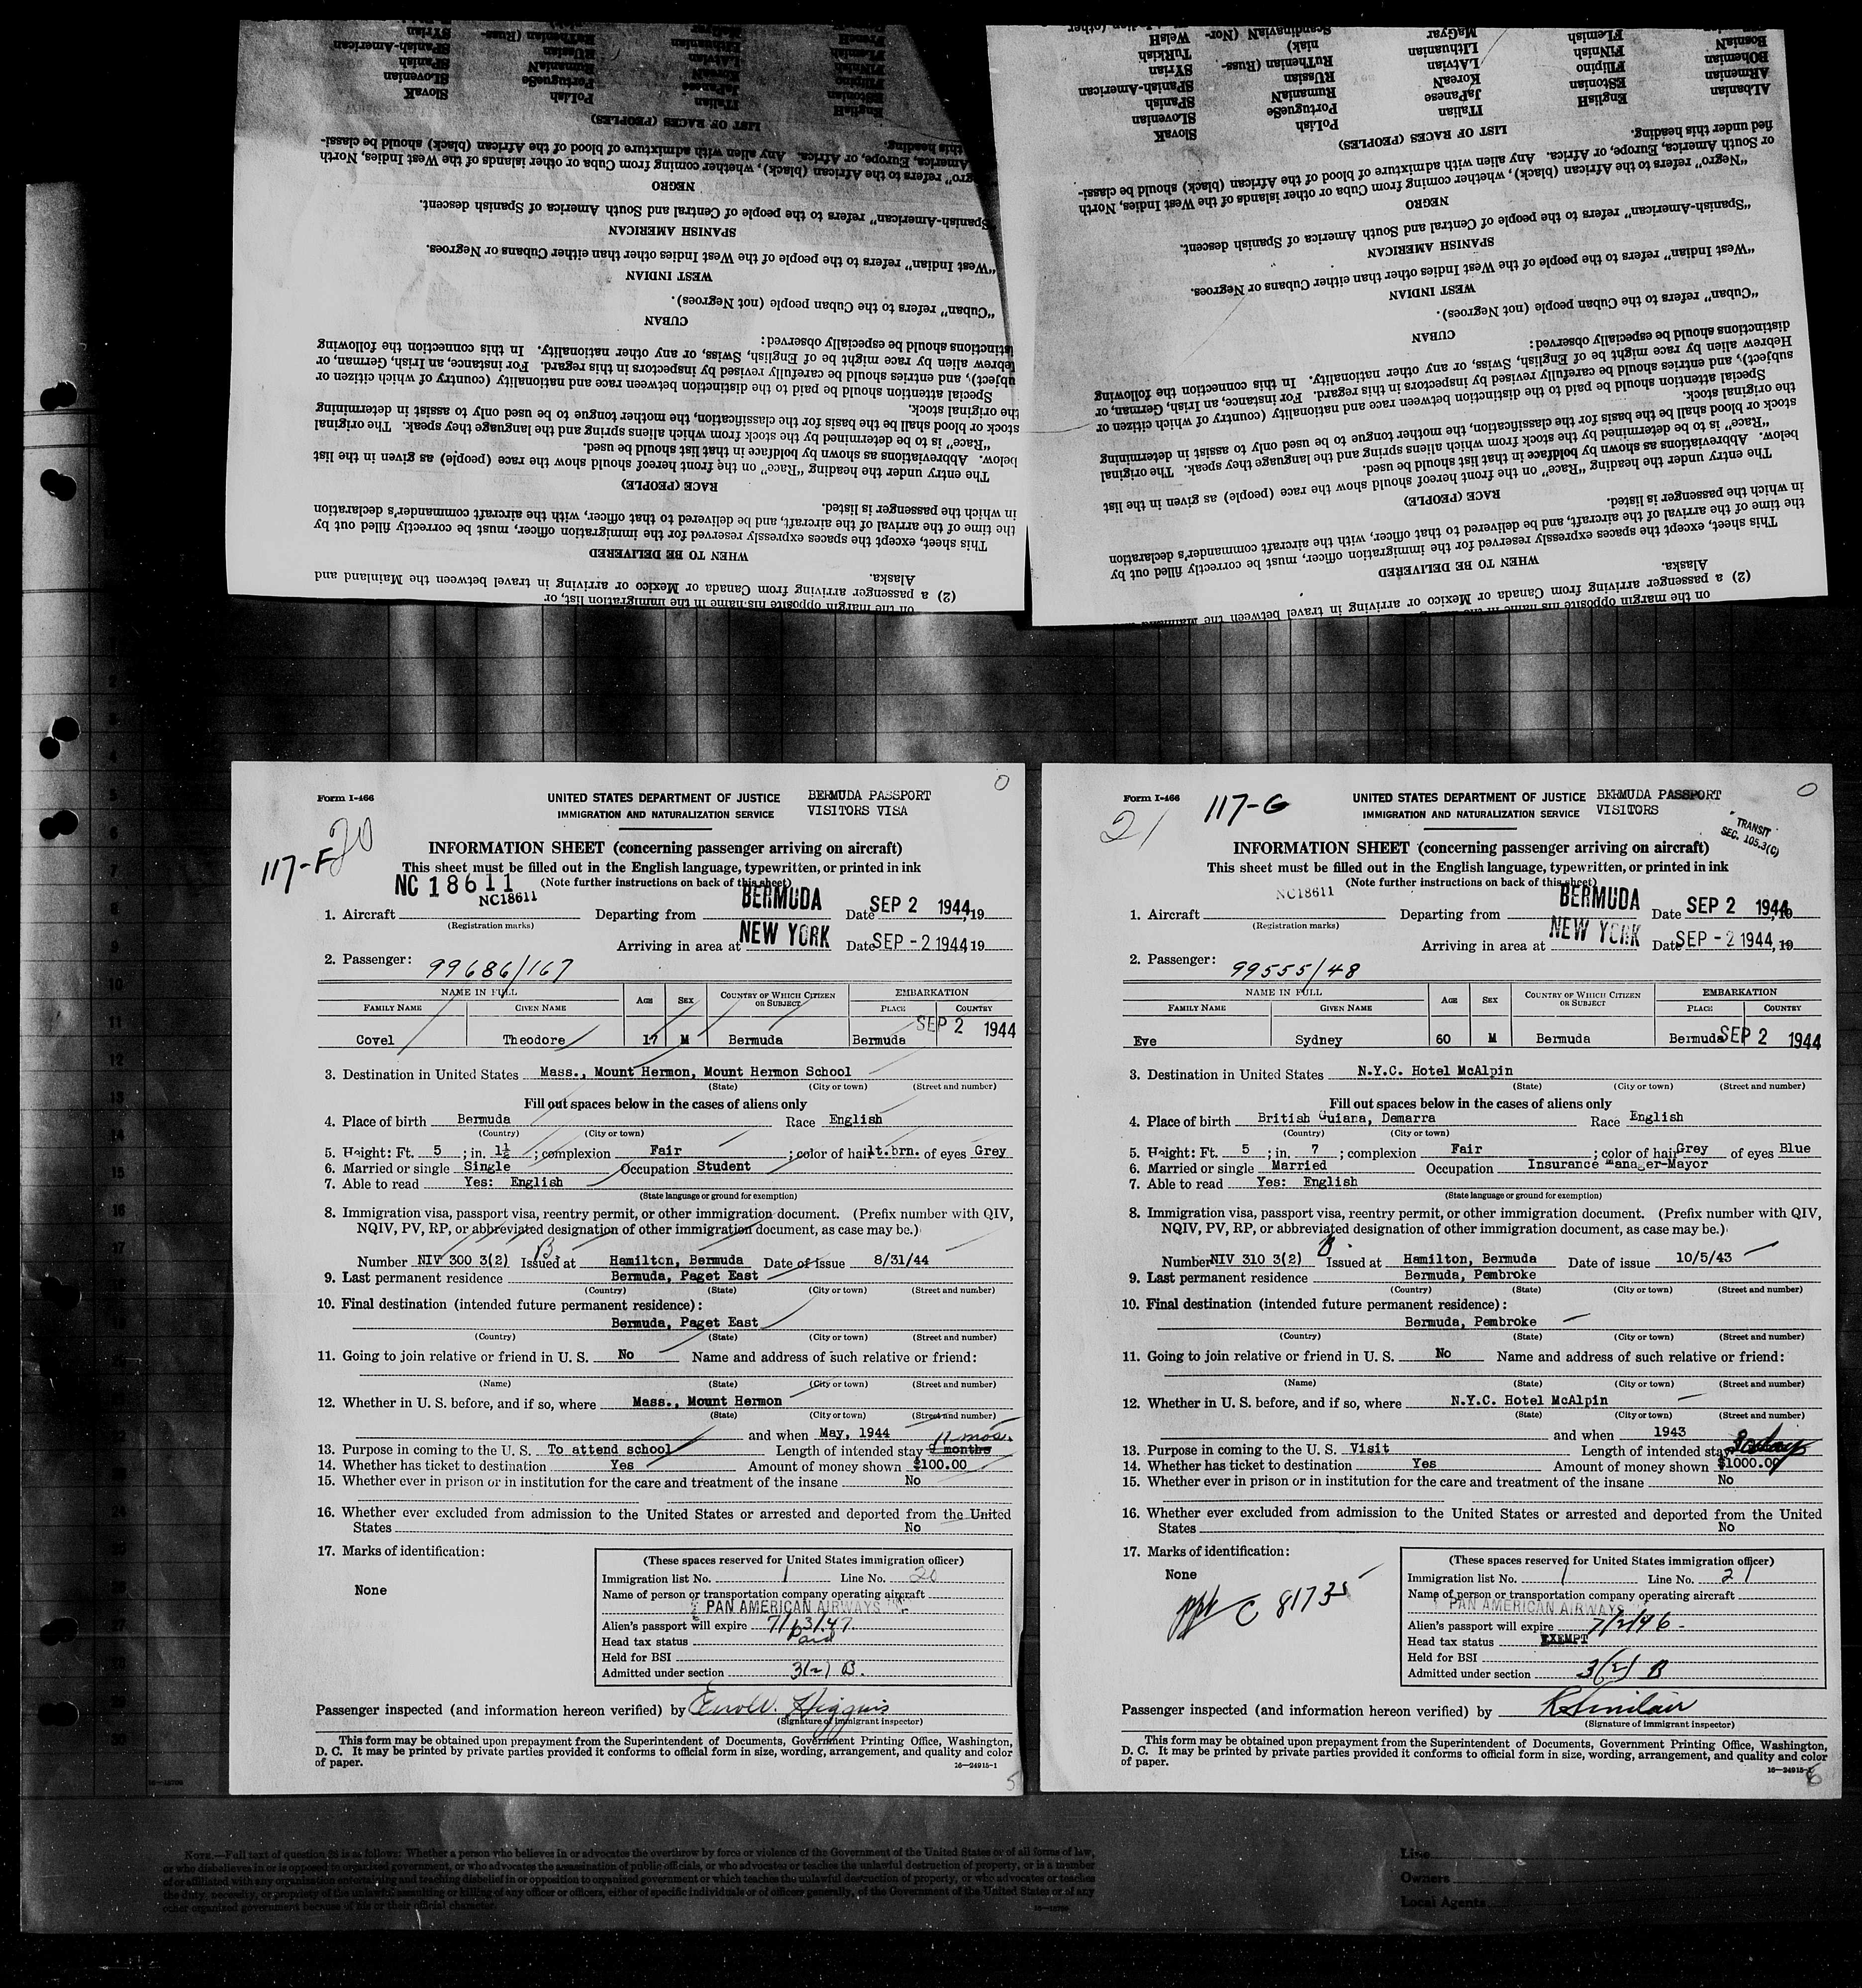 SlovaK
SLOvenian
SPanish
SPanish-American
SYrian
PoLish
PortugueSe
RumaniaN
RUssian
RuThenian (Russ-
ITalian
JaPanese
KoreaN
LAtvian
LIthuanian
EnglisH
EStonian
FIlipino
FiNnish
FLemish
LIST OF RACES (PEOPLES)
this heading.
America, Europe, or Africa. Any alien with admixture of blood of the African (black) should be classi-
gro" refers to the African (black), whether coming from Cuba or other islands of the West Indies, North
NEGRO
Spanish-American" refers to the people of Central and South America of Spanish descent.
SPANISH AMERICAN
"West Indian" refers to the people of the West Indies other than either Cubans or Negroes.
WEST INDIAN
"Cuban" refers to the Cuban people (not Negroes).
CUBAN
istinctions should be especially observed:
ebrew alien by race might be of English, Swiss, or any other nationality. In this connection the following
ubject), and entries should be carefully revised by inspectors in this regard. For instance, an Irish, German, or
Special attention should be paid to the distinction between race and nationality (country of which citizen or
the original stock.
stock or blood shall be the basis for the classification, the mother tongue to be used only to assist in determining
"Race" is to be determined by the stock from which aliens spring and the language they speak. The original
below. Abbreviations as shown by boldface in that list should be used.
The entry under the heading "Race" on the front hereof should show the race (people) as given in the list
RACE (PEOPLE)
in which the passenger is listed.
the time of the arrival of the aircraft, and be delivered to that officer, with the aircraft commander's declaration
This sheet, except the spaces expressly reserved for the immigration officer, must be correctly filled out by
WHEN TO BE DELIVERED
Alaska.
(2) a passenger arriving from Canada or Mexico or arriving in travel between the Mainland and
on the margin opposite his name in the immigration list, or
WelsH
TurKish
SYrian
SPanish-American
SPanish
SLOvenian
SlovaK
ScandinaviaN (Nor-
niak)
RuThenian (Russ-
RUssian
RumaniaN
PortugueSe
PoLish
MaGyar
LIthuanian
LAtvian
KoreaN
JaPanese
ITalian
FLemish
FiNnish
FIlipino
EStonian
EnglisH
BosniaN
BOhemian
ARmenian
ALbanian
LIST OF RACES (PEOPLES)
fied under this heading.
or South America, Europe, or Africa. Any alien with admixture of blood of the African (black) should be classi-
"Negro" refers to the African (black), whether coming from Cuba or other islands of the West Indies, North
NEGRO
"Spanish-American" refers to the people of Central and South America of Spanish descent.
SPANISH AMERICAN
"West Indian" refers to the people of the West Indies other than either Cubans or Negroes.
WEST INDIAN
"Cuban" refers to the Cuban people (not Negroes).
CUBAN
distinctions should be especially observed:
Hebrew alien by race might be of English, Swiss, or any other nationality. In this connection the following
subject), and entries should be carefully revised by inspectors in this regard. For instance, an Irish, German, or
Special attention should be paid to the distinction between race and nationality (country of which citizen or
the original stock.
stock or blood shall be the basis for the classification, the mother tongue to be used only to assist in determining
"Race" is to be determined by the stock from which aliens spring and the language they speak. The original
below. Abbreviations as shown by boldface in that list should be used.
The entry under the heading "Race" on the front hereof should show the race (people) as given in the list
RACE (PEOPLE)
in which the passenger is listed.
the time of the arrival of the aircraft, and be delivered to that officer, with the aircraft commander's declaration
This sheet, except the spaces expressly reserved for the immigration officer, must be correctly filled out by
WHEN TO BE DELIVERED
Alaska.
(2) a passenger arriving from Canada or Mexico or arriving in travel between the Mainland and
on the margin opposite his name in the
0
Form I-466
UNITED STATES DEPARTMENT OF JUSTICE BERMUDA PASSPORT
IMMIGRATION AND NATURALIZATION SERVICE VISITORS VISA
117-F 20
INFORMATION SHEET (concerning passenger arriving on aircraft)
This sheet must be filled out in the English language, typewritten, or printed in ink
(Note further instructions on back of this sheet)
NC 18611
NC18611
1. Aircraft Departing from BERMUDA Date SEP 2 1944, 19
(Registration marks)
Arriving in area at NEW YORK Date SEP - 2 1944 19
2. Passenger: 99686/167
NAME IN FULL AGE SEX COUNTRY OF WHICH CITIZEN OR SUBJECT EMBARKATION
FAMILY NAME GIVEN NAME PLACE COUNTRY
SEP 2 1944
Covel Theodore 17 M Bermuda Bermuda
3. Destination in United States Mass., Mount Hermon, Mount Hermon School
(State) (City or town) (Street and number)
Fill out spaces below in the cases of aliens only
4. Place of birth Bermuda Race English
(Country) (City or town)
5. Height: Ft. 5 ; in. 1½ ; complexion Fair ; color of hair lt.brn. of eyes Grey
6. Married or single Single Occupation Student
7. Able to read Yes: English
(State language or ground for exemption)
8. Immigration visa, passport visa, reentry permit, or other immigration document. (Prefix number with QIV,
NQIV, PV, RP, or abbreviated designation of other immigration document, as case may be.)
Number NIV 300 3(2) B. Issued at Hamilton, Bermuda Date of issue 8/31/44
9. Last permanent residence Bermuda, Paget East
(Country) (State) (City or town) (Street and number)
10. Final destination (intended future permanent residence):
Bermuda, Paget East
(Country) (State) (City or town) (Street and number)
11. Going to join relative or friend in U. S. No Name and address of such relative or friend:
(Name) (State) (City or town) (Street and number)
12. Whether in U. S. before, and if so, where Mass., Mount Hermon
(State) (City or town) (Street and number)
and when May, 1944 11 mos.
13. Purpose in coming to the U. S. To attend school Length of intended stay 9 months
14. Whether has ticket to destination Yes Amount of money shown $100.00
15. Whether ever in prison or in institution for the care and treatment of the insane No
16. Whether ever excluded from admission to the United States or arrested and deported from the United
States No
17. Marks of identification:
None
(These spaces reserved for United States immigration officer)
Immigration list No. 1 Line No. 20
Name of person or transportation company operating aircraft
PAN AMERICAN AIRWAYS INC.
Alien's passport will expire 7/13/47
Head tax status Paid
Held for BSI
Admitted under section 3(2) B.
Passenger inspected (and information hereon verified) by Errol W. Higgins
(Signature of immigrant inspector)
This form may be obtained upon prepayment from the Superintendent of Documents, Government Printing Office, Washington,
D. C. It may be printed by private parties provided it conforms to official form in size, wording, arrangement, and quality and color
of paper.
16—24915-1
5
0
Form I-466
21 117-G
UNITED STATES DEPARTMENT OF JUSTICE BERMUDA PASSPORT
IMMIGRATION AND NATURALIZATION SERVICE VISITORS
TRANSIT
SEC. 105.3(C)
INFORMATION SHEET (concerning passenger arriving on aircraft)
This sheet must be filled out in the English language, typewritten, or printed in ink
(Note further instructions on back of this sheet)
NC18611
1. Aircraft Departing from BERMUDA Date SEP 2 1944, 19
(Registration marks)
Arriving in area at NEW YORK Date SEP - 2 1944, 19
2. Passenger: 99555/48
NAME IN FULL AGE SEX COUNTRY OF WHICH CITIZEN OR SUBJECT EMBARKATION
FAMILY NAME GIVEN NAME PLACE COUNTRY
Eve Sydney 60 M Bermuda Bermuda SEP 2 1944
3. Destination in United States N.Y.C. Hotel McAlpin
(State) (City or town) (Street and number)
Fill out spaces below in the cases of aliens only
4. Place of birth British Guiana, Demarra Race English
(Country) (City or town)
5. Height: Ft. 5 ; in. 7 ; complexion Fair ; color of hair Grey of eyes Blue
6. Married or single Married Occupation Insurance Manager-Mayor
7. Able to read Yes: English
(State language or ground for exemption)
8. Immigration visa, passport visa, reentry permit, or other immigration document. (Prefix number with QIV,
NQIV, PV, RP, or abbreviated designation of other immigration document, as case may be.)
Number NIV 310 3(2) B. Issued at Hamilton, Bermuda Date of issue 10/5/43
9. Last permanent residence Bermuda, Pembroke
(Country) (State) (City or town) (Street and number)
10. Final destination (intended future permanent residence):
Bermuda, Pembroke
(Country) (State) (City or town) (Street and number)
11. Going to join relative or friend in U. S. No Name and address of such relative or friend:
(Name) (State) (City or town) (Street and number)
12. Whether in U. S. before, and if so, where N.Y.C. Hotel McAlpin
(State) (City or town) (Street and number)
and when 1943
13. Purpose in coming to the U. S. Visit Length of intended stay
14. Whether has ticket to destination Yes Amount of money shown $1000.00
15. Whether ever in prison or in institution for the care and treatment of the insane No
16. Whether ever excluded from admission to the United States or arrested and deported from the United
States No
17. Marks of identification:
None
ppt C 81735
(These spaces reserved for United States immigration officer)
Immigration list No. 1 Line No. 21
Name of person or transportation company operating aircraft
PAN AMERICAN AIRWAYS
Alien's passport will expire 7/2/46-
Head tax status EXEMPT
Held for BSI
Admitted under section 3(2) B
Passenger inspected (and information hereon verified) by R Sinclair
(Signature of immigrant inspector)
This form may be obtained upon prepayment from the Superintendent of Documents, Government Printing Office, Washington,
D. C. It may be printed by private parties provided it conforms to official form in size, wording, arrangement, and quality and color
of paper.
16—24915-1
6
NOTE.—Full text of question is as follows: Whether a person who believes in or advocates the overthrow by force or violence of the Government of the United States or of all forms of law,
or who disbelieves in or is opposed to organized government, or who advocates the assassination of public officials, or who advocates or teaches the unlawful destruction of property, or is a member
of or affiliated with any organization entertaining and teaching disbelief in or opposition to organized government or which teaches the unlawful destruction of property, or who advocates or teaches
the duty, necessity, or propriety of the unlawful assaulting or killing of any officer or officers, either of specific individuals or of officers generally, of the Government of the United States or of any
other organized government because of his or their official character.
Line
Owners
Local Agents